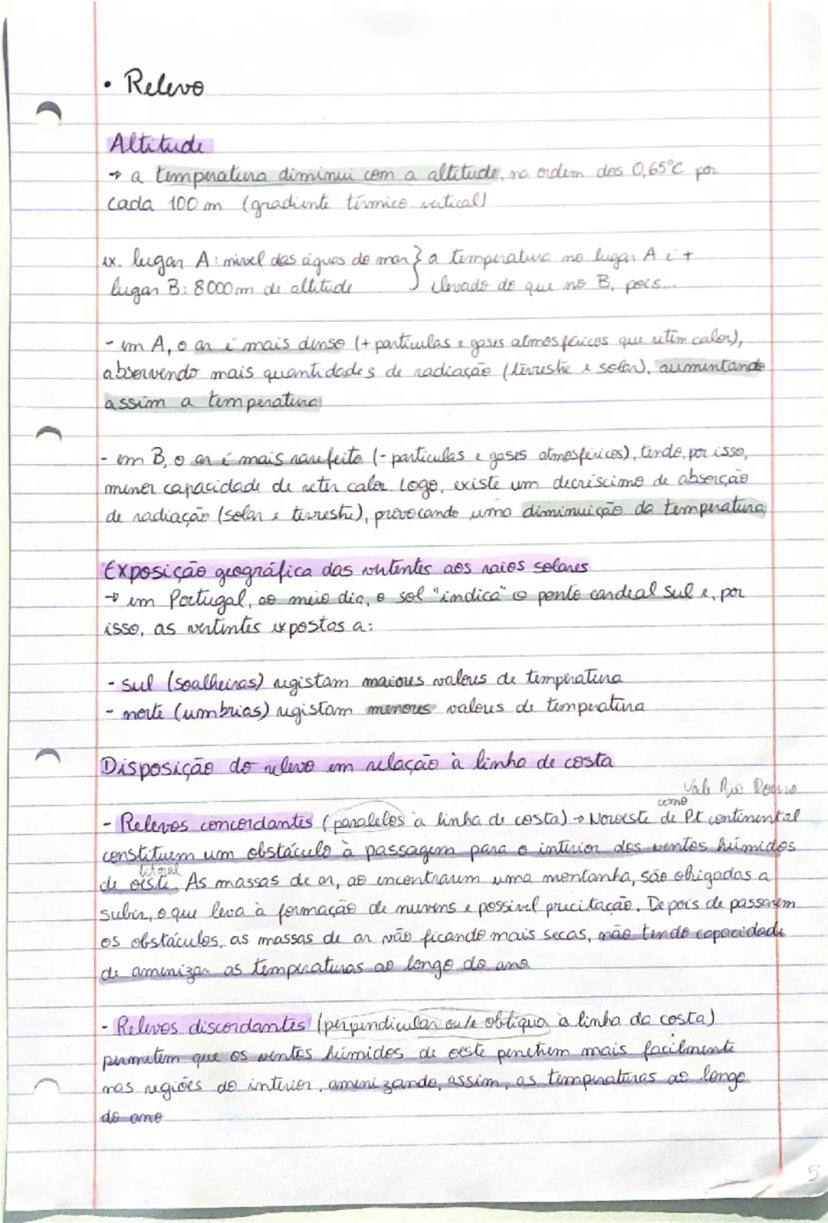 • Relevo
Altitude
→ a temperatura diminui com a altitude, na ordem dos 0,65°C por
cada 100 m (gradiente térmico vertical)
ex. lugar A: nível das águas do mar } a temperatura no lugar A é +
lugar B: 8000m de altitude } elevado do que no B, pois...
- em A, o ar é mais denso (+ partículas e gases atmosféricos que retêm calor),
absorvendo mais quantidades de radiação (terrestre e solar), aumentando
assim a temperatura
- em B, o ar é mais rarefeito (- partículas e gases atmosféricos), tendo, por isso,
menor capacidade de reter calor. Logo, existe um decréscimo de absorção
de radiação (solar e terrestre), provocando uma diminuição da temperatura
Exposição geográfica das vertentes aos raios solares
→ em Portugal, ao meio dia, o sol "indica" o ponto cardeal sul e, por
isso, as vertentes expostas a:
- sul (soalheiras) registam maiores valores de temperatura
- norte (umbrias) registam menores valores de temperatura
Disposição do relevo em relação à linha de costa
Vale Rio Douro
como
- Relevos concordantes (paralelos à linha de costa) → Noroeste de Pt continental
constituem um obstáculo à passagem para o interior dos ventos húmidos
litoral
de oeste. As massas de ar, ao encontrarem uma montanha, são obrigadas a
subir, o que leva à formação de nuvens e possível precitação. Depois de passarem
os obstáculos, as massas de ar vão ficando mais secas, não tendo capacidade
de amenizar as temperaturas ao longo do ano
- Relevos discordantes (perpendicular ou/e oblíqua à linha da costa)
permitem que os ventos húmidos de oeste penetrem mais facilmente
nas regiões do interior, amenizando, assim, as temperaturas ao longo
do ano
5